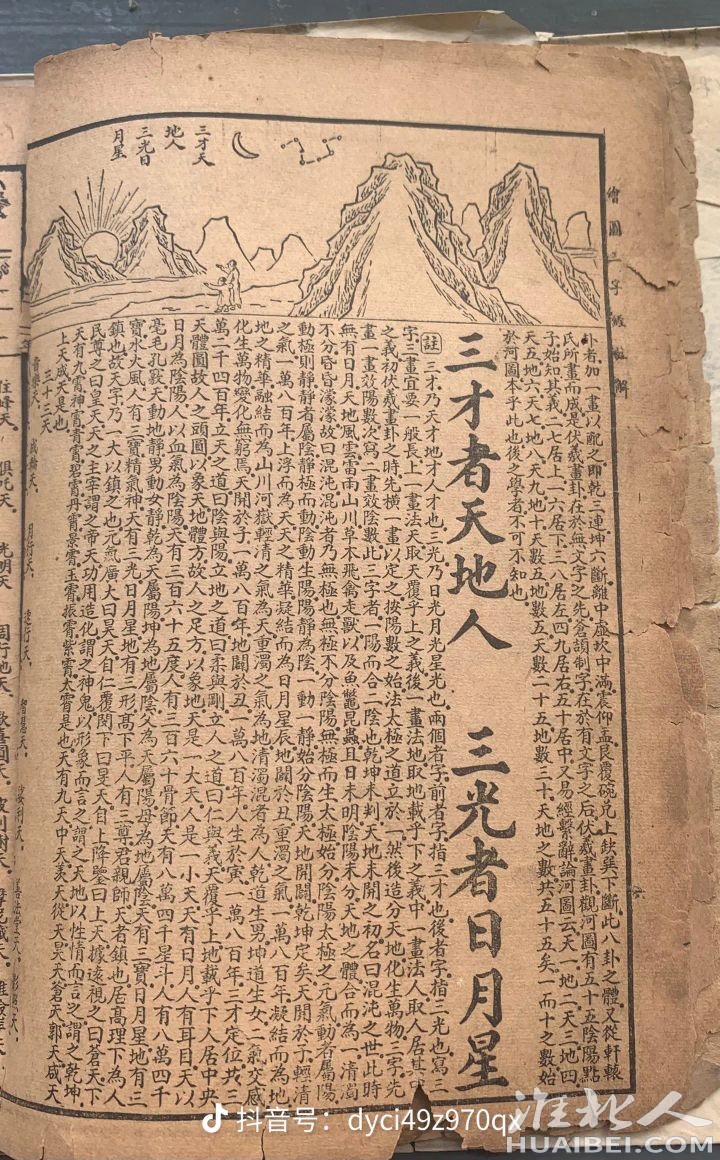 繪圖三字經註解
三才天
地人
三光日
月星
卦者加一畫以配之即乾三連坤六斷離中虛坎中滿震仰盂艮覆碗兌上缺巽下斷此八卦之體又從軒轅
氏所畫而成是伏羲畫卦在於無文字之先倉頡制字在於有文字之后伏羲畫卦觀河圖有五十五陰陽點
子始知其義二七居上一六居下三八居左四九居右五十居中又易經繫辭論河圖云天一地二天三地四
天五地六天七地八天九地十天數五地數五天數二十五地數三十天地之數共五十五矣一而十之數始
於河圖本乎此也後之學者不可不知也
三才者天地人 三光者日月星
註三才乃天才地才人才也三光乃日光月光星光也兩個者字前者字指三才也後者字指三光也寫三
字三畫宜要一般長上一畫法天取天覆乎上之義後一畫法地取地載乎下之義中一畫法人取人居其中
之義初伏羲畫卦之時先橫一畫以定之按陽數之始法太極之道立於一然後造分天地化生萬物二字先
畫一畫效陽數次寫二畫效陰數此三字者一陽而合一陰也乾坤未判天地未開之初名曰混沌之世此時
無有日月天地風雲雷雨山川草木飛禽走獸以及魚鼈昆蟲且日未明陰陽未分天地之體合而為一清濁
不分昏昏濛濛故曰混沌混沌者乃無極也無極不分陰陽無極而生太極始分陰陽太極之元氣動者屬陽
動極則靜靜者屬陰靜極而動陰動生陽陽靜為陰一動一靜始分陰陽天地開闢乾坤定矣天開於子輕清
之氣一萬八百年上浮而為天天之精華凝結而為日月星辰地闢於丑重濁之氣一萬八百年凝結而為地
地之精華融結而為山川河嶽輕清之氣為天重濁之氣為地清濁混者為人乾道生男坤道生女二氣交感
化生萬物變化無窮焉天開於子一萬八百年地闢於丑一萬八百年人生於寅一萬八百年三才定位共三
萬二千四百年立天之道曰陰與陽立地之道曰柔與剛立人之道曰仁與義天覆乎上地載乎下人居中央
天體圓故人之頭圓以象天地體方故人之足方以象地天是一大天人是一小天天有日月人有耳目天以
日月為陰陽人以血氣為陰陽天有三百六十五度人有三百六十骨節天有八萬四千星斗人有八萬四千
毫毛孔竅天動地靜男動女靜乾為天屬陽坤為地屬陰父為天屬陽母為地屬陰天有三寶日月星地有三
寶水火風人有三寶精氣神天有三光日月星地有三形高下平人有三尊君親師天者鎮也居高理下為人
鎮也故天字乃一大以鎮之也元氣廣大曰昊天自仁覆閔下曰旻天自上降鑒曰上天據遠視之曰蒼天下
民尊之曰皇天天之主宰謂之帝天功用造化謂之神鬼以形象而言之謂之天地以性情而言之謂之乾坤
天有九霄神霄青霄碧霄丹霄景霄玉霄振霄紫霄太霄是也天有九天中天羨天從天昊天蒼天郭天咸天
上天成天是也
三十三天
月行天 速行天 智慧天
住峰天 俱吒天 光明天 周行地天 歡喜園天 波利樹天
抖音号：dyci49z970qx
淮北人
HUAIBEI.COM